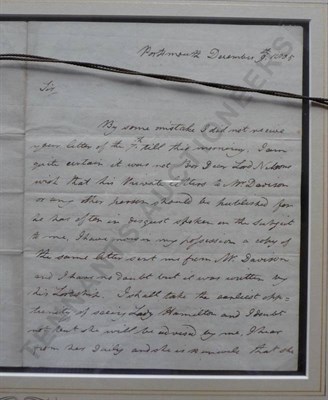 Portsmouth December 9th 1805
Sir,
By some mistake I did not receive
your letter of the 7th till this morning, I am
quite certain it was not our Dear Lord Nelsons
wish that his Private letters to Mr. Davison
or any other person should be published for
he has often in disgust spoken on the subject
to me, I have now in my possession a copy of
the same letter sent me from Mr. Davison
and I have no doubt but it was written by
his Lordship. I shall take the earliest opp-
tunity of seeing Lady Hamilton and I doubt
not but she will be advised by me, I hear
from her daily and she is that she